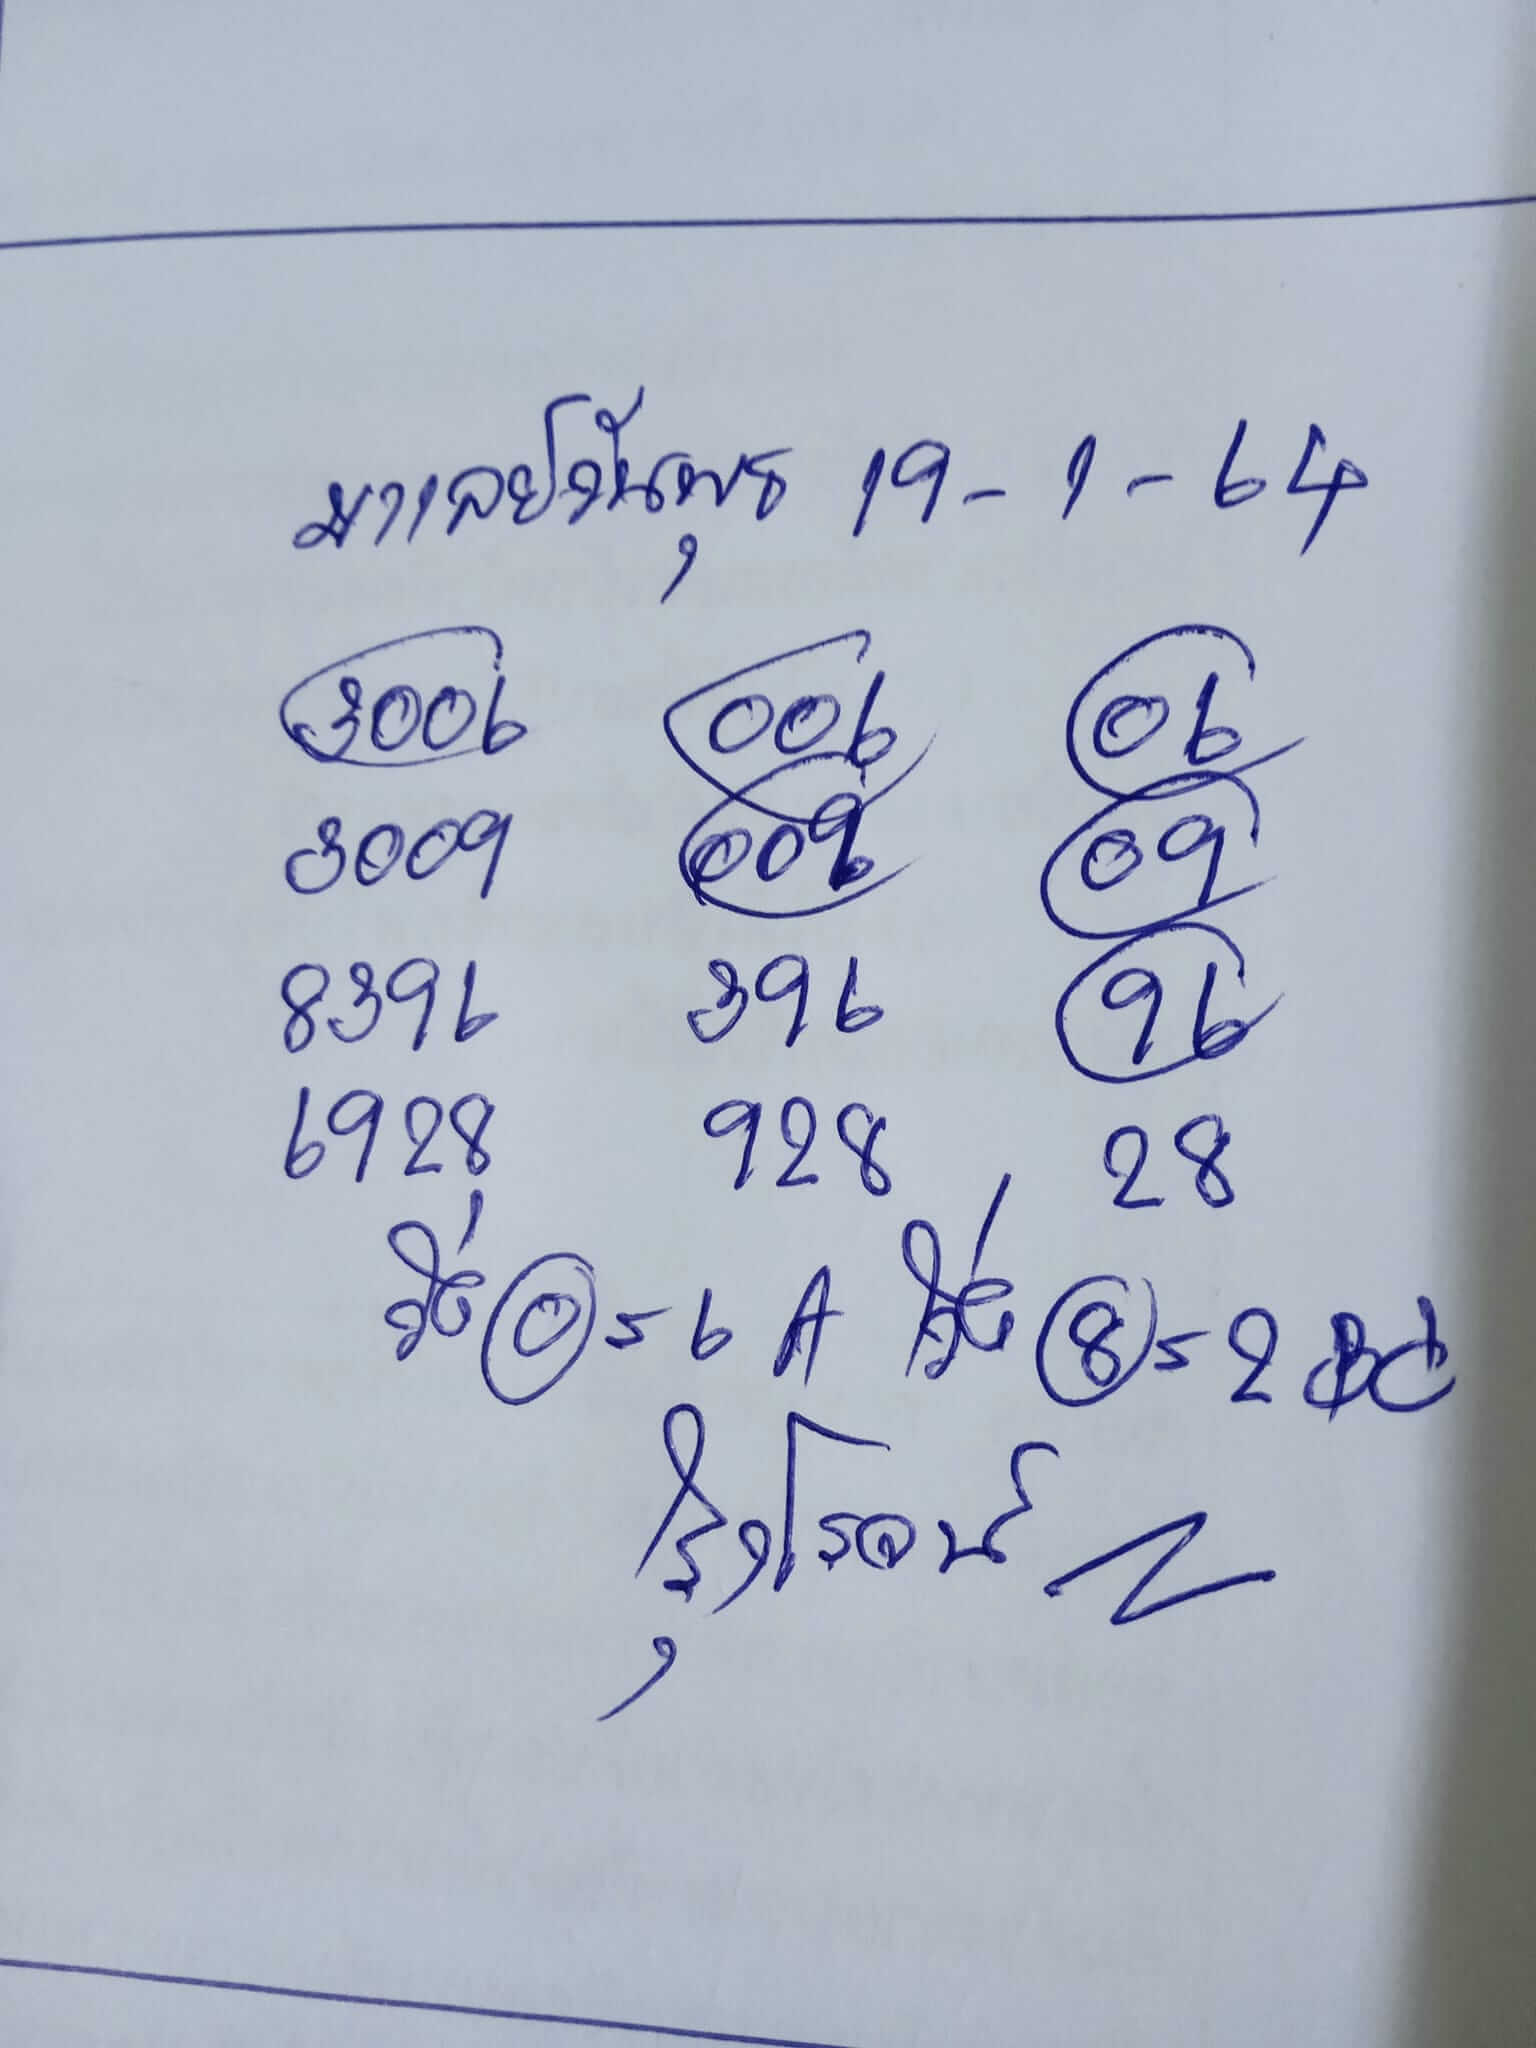 มาเลย์วันพุธ 19-1-64
3006 006 06
3009 009 09
8396 396 96
6928 928 28
วิ่ง 0=6 A วิ่ง 8=2 BC
รุ่งโรจน์